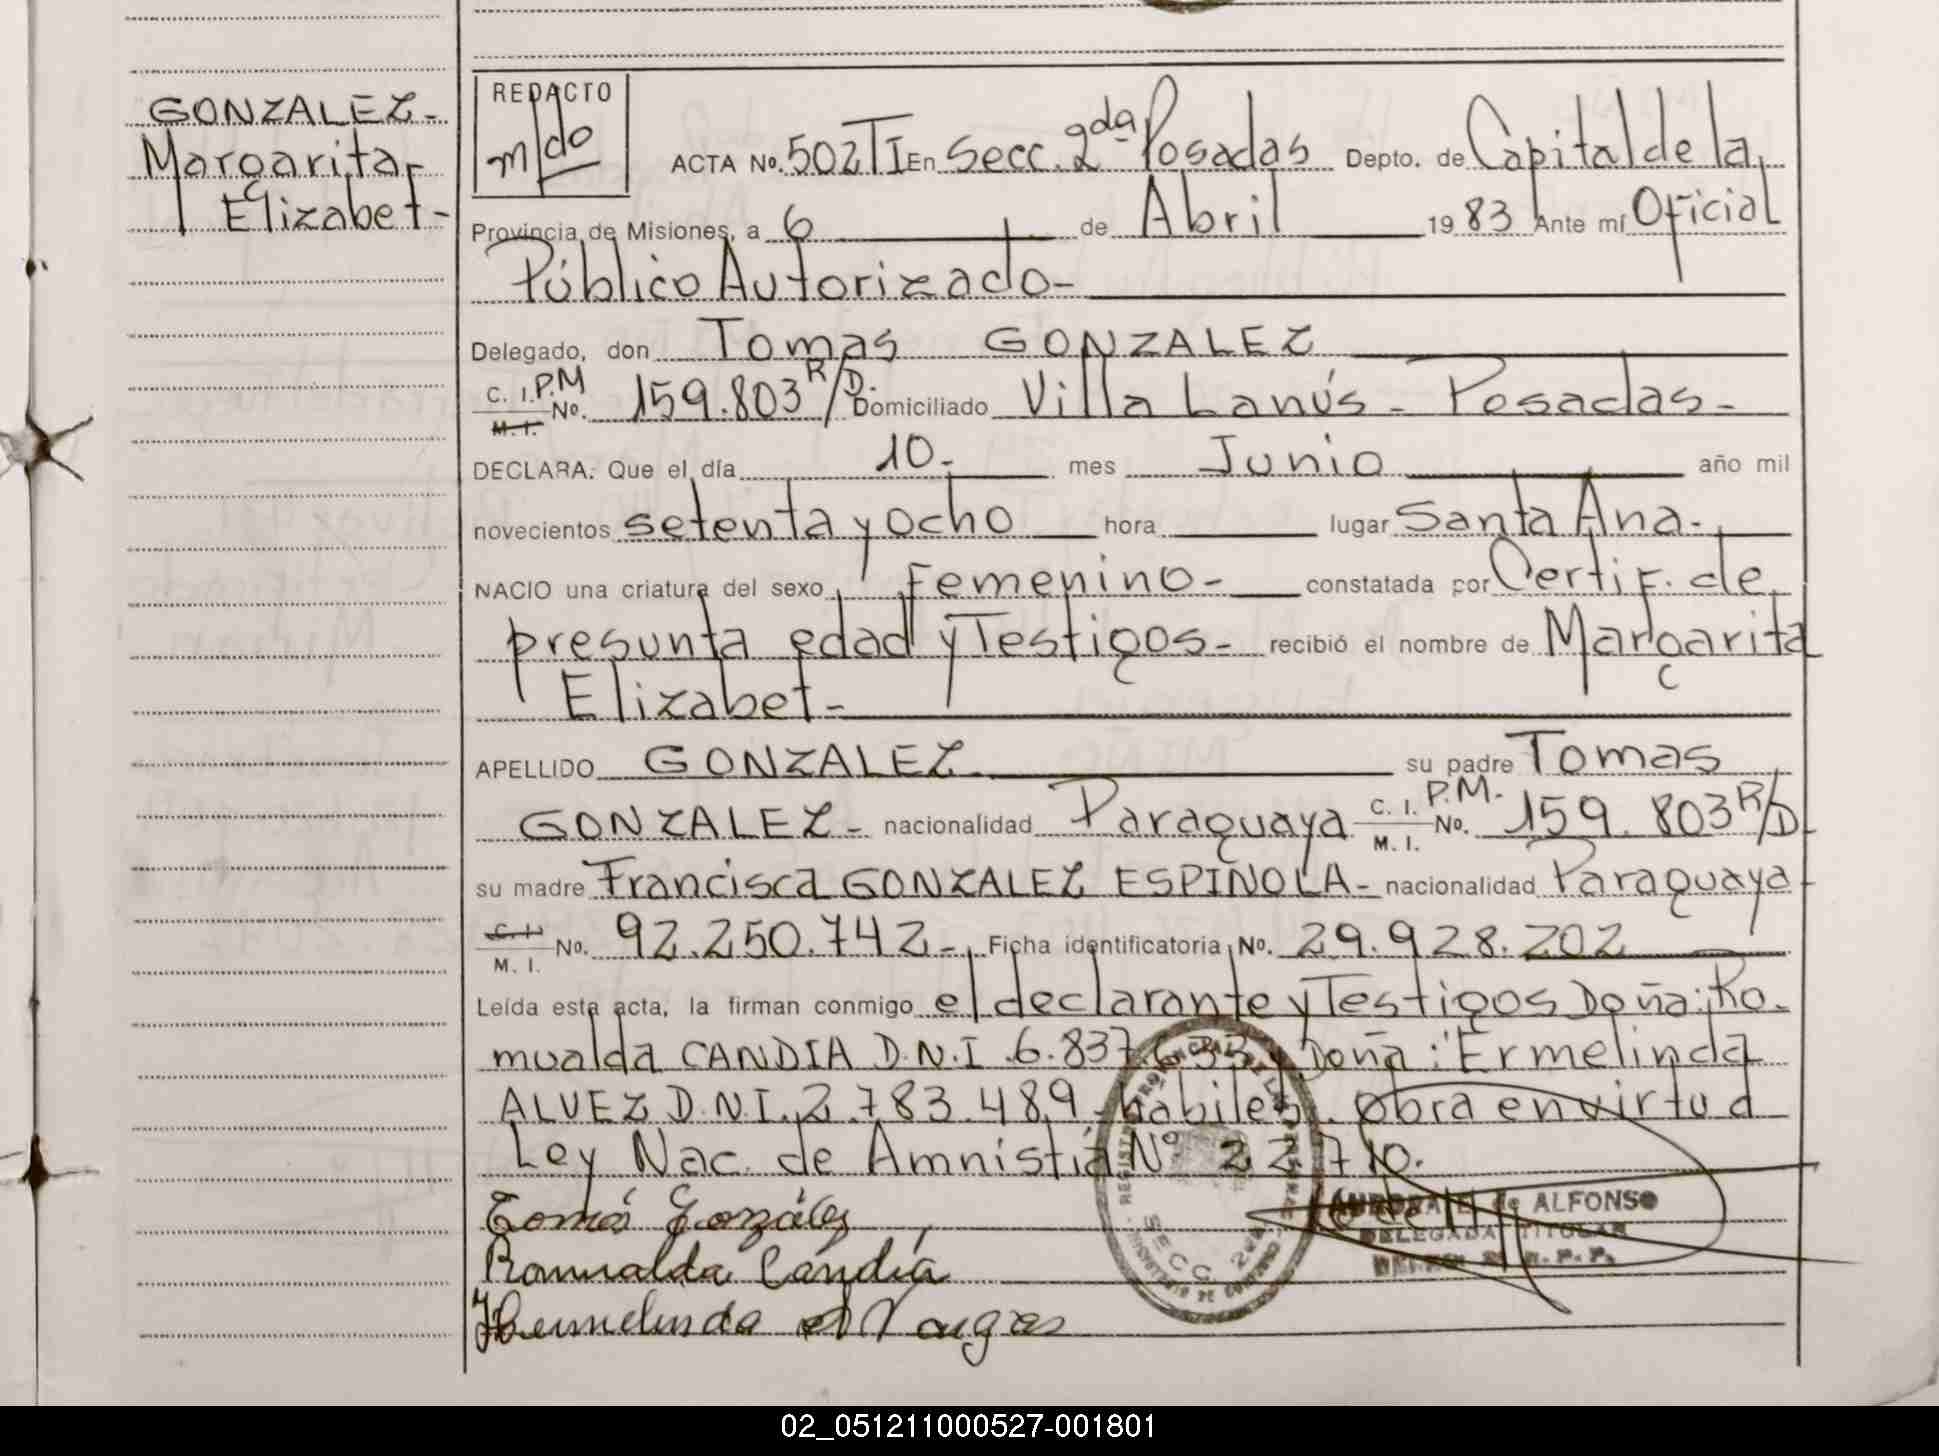 GONZALEZ-
Margarita
Elizabet-
REDACTO
m/do
ACTA No. 502 TI En Secc. 2da Posadas Depto. de Capital de la
Provincia de Misiones, a 6 de Abril 1983 Ante mí Oficial
Público Autorizado-
Delegado, don Tomas GONZALEZ
C. I. P.M
M. I. No. 159.803 R/D. Domiciliado Villa Lanús - Posadas-
DECLARA: Que el día 10- mes Junio año mil
novecientos setenta y ocho hora lugar Santa Ana-
NACIO una criatura del sexo Femenino- constatada por Certif. de
presunta edad y Testigos- recibió el nombre de Margarita
Elizabet-
APELLIDO GONZALEZ su padre Tomas
GONZALEZ- nacionalidad Paraguaya C. I. P.M- M. I. No. 159.803 R/D
su madre Francisca GONZALEZ ESPINOLA- nacionalidad Paraguaya
C. I.
M. I. No. 92.250.742- Ficha identificatoria No. 29.928.202
Leída esta acta, la firman conmigo el declarante y Testigos Doña: Ro-
mualda CANDIA D.N.I. 6.837. y Doña: Ermelinda
ALVEZ D.N.I. 2.783.489- habiles. Obra en virtud
Ley Nac. de Amnistia Nº 22710.
Tomás González
AURORA de ALFONSO
DELEGADA TITULAR
R. P. P.
Romualda Candia
Vargas
REGISTRO PROVINCIAL DE LAS PERSONAS
MINISTERIO DE GOBIERNO
SECC. 2da
02_051211000527-001801